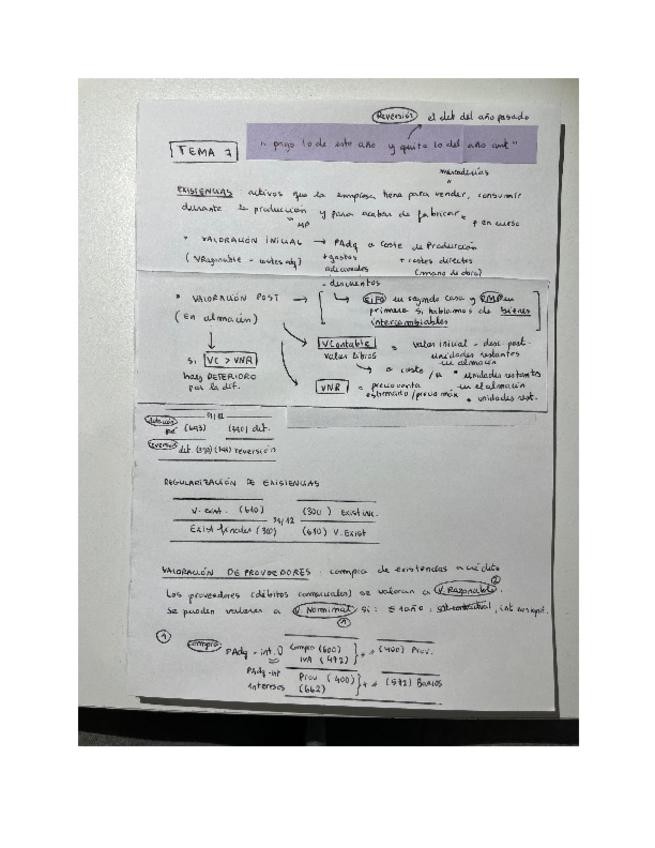 Reversión el det del año pasado
TEMA 7 "pago lo de este año y quito lo del año ant"
mercaderías
EXISTENCIAS: activos que la empresa tiene para vender, consumir
durante la producción y para acabar de fabricar
MP p en curso
* VALORACIÓN INICIAL → PAdq o Coste de Producción
(VRazonable - costes adq) + gastos + costes directos
adicionales (mano de obra)
- descuentos
* VALORACIÓN POST → FIFO en segundo caso y PMP en
(En almacén) primero si hablamos de bienes
intercambiables
VContable = valor inicial - desc. post.
valor libros unidades restantes
en almacén
si VC > VNR → o coste/u * unidades restantes
hay DETERIORO en el almacén
por la dif. VNR = precio venta
estimado/precio máx * unidades rest.
31/12
(693) (390) det.
reversión det. (390) (793) reversión
REGULARIZACIÓN DE EXISTENCIAS
V. exist. (610) (300) Exist inc.
31/12
Exist finales (300) (610) V. Exist
VALORACIÓN DE PROVEEDORES: compra de existencias a crédito
Los proveedores (débitos comerciales) se valoran a V. Razonable. 2
Se pueden valorar a V. Nominal si: ≤ 1 año, int no signf.
1
1 compra PAdq - int. Compra (600) + = (400) Prov.
IVA (472)
PAdq - int Prov (400) + = (572) Bancos
intereses (662)